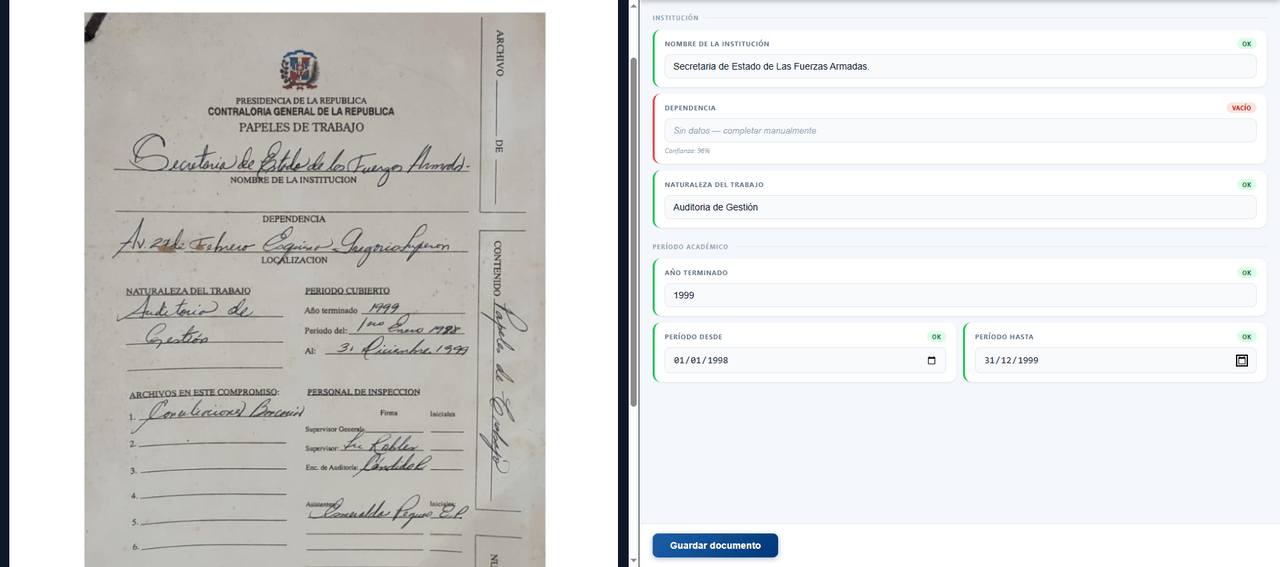 PRESIDENCIA DE LA REPUBLICA
CONTRALORIA GENERAL DE LA REPUBLICA
PAPELES DE TRABAJO
Secretaria de Estado de las Fuerzas Armadas.
NOMBRE DE LA INSTITUCION
DEPENDENCIA
Av. 27 de Febrero Esquina Gregorio Luperon
LOCALIZACION
NATURALEZA DEL TRABAJO
Auditoria de
Gestión
PERIODO CUBIERTO
Año terminado 1999
Periodo del: 1ro Enero 1998
Al: 31 Diciembre, 1999
ARCHIVOS EN ESTE COMPROMISO:
1. Conciliaciones Bancarias
2.
3.
4.
5.
6.
PERSONAL DE INSPECCION
Firma Iniciales
Supervisor General
Supervisor Robles
Enc. de Auditoría:
Asistentes Iniciales:
Esmeralda E.P.
ARCHIVO DE
CONTENIDO Papeles de Trabajo
NU
INSTITUCIÓN
NOMBRE DE LA INSTITUCIÓN OK
Secretaria de Estado de Las Fuerzas Armadas.
DEPENDENCIA VACÍO
Sin datos — completar manualmente
Confianza: 96%
NATURALEZA DEL TRABAJO OK
Auditoria de Gestión
PERÍODO ACADÉMICO
AÑO TERMINADO OK
1999
PERÍODO DESDE OK
01/01/1998
PERÍODO HASTA OK
31/12/1999
Guardar documento